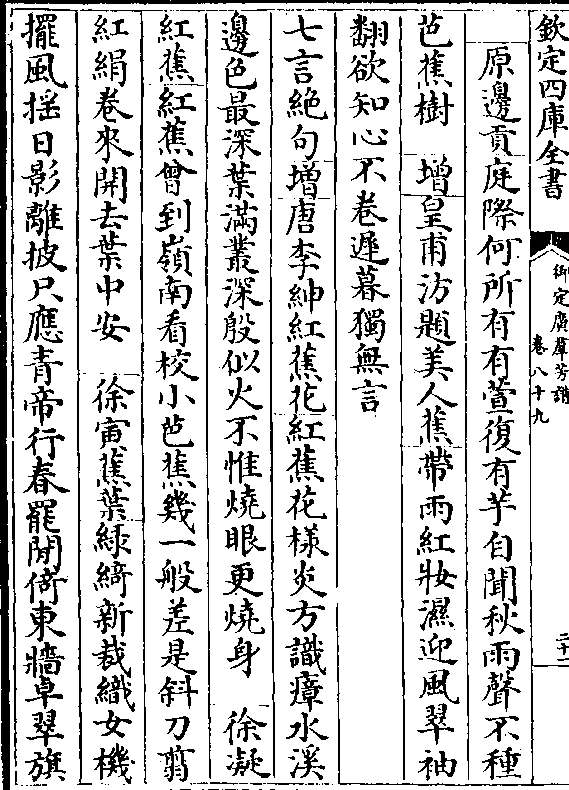 欽定四庫全書
御定廣羣芳譜
卷八十九
二十二
原邊貢庭際何所有有萱復有芋自聞秋雨聲不種
芭蕉樹　增皇甫汸題美人蕉帶雨紅妝濕迎風翠袖
翻欲知心不卷遲暮獨無言
七言絶句增唐李紳紅蕉花紅蕉花様炎方識瘴水溪
邊色最深葉滿叢深殷似火不惟燒眼更燒身　徐凝
紅蕉紅蕉曾到嶺南看校小芭蕉幾一般差是斜刀翦
紅絹卷來開去葉中安　徐寅蕉葉緑綺新裁織女機
擺風揺日影離披只應青帝行春罷閒倚東牆卓翠旗